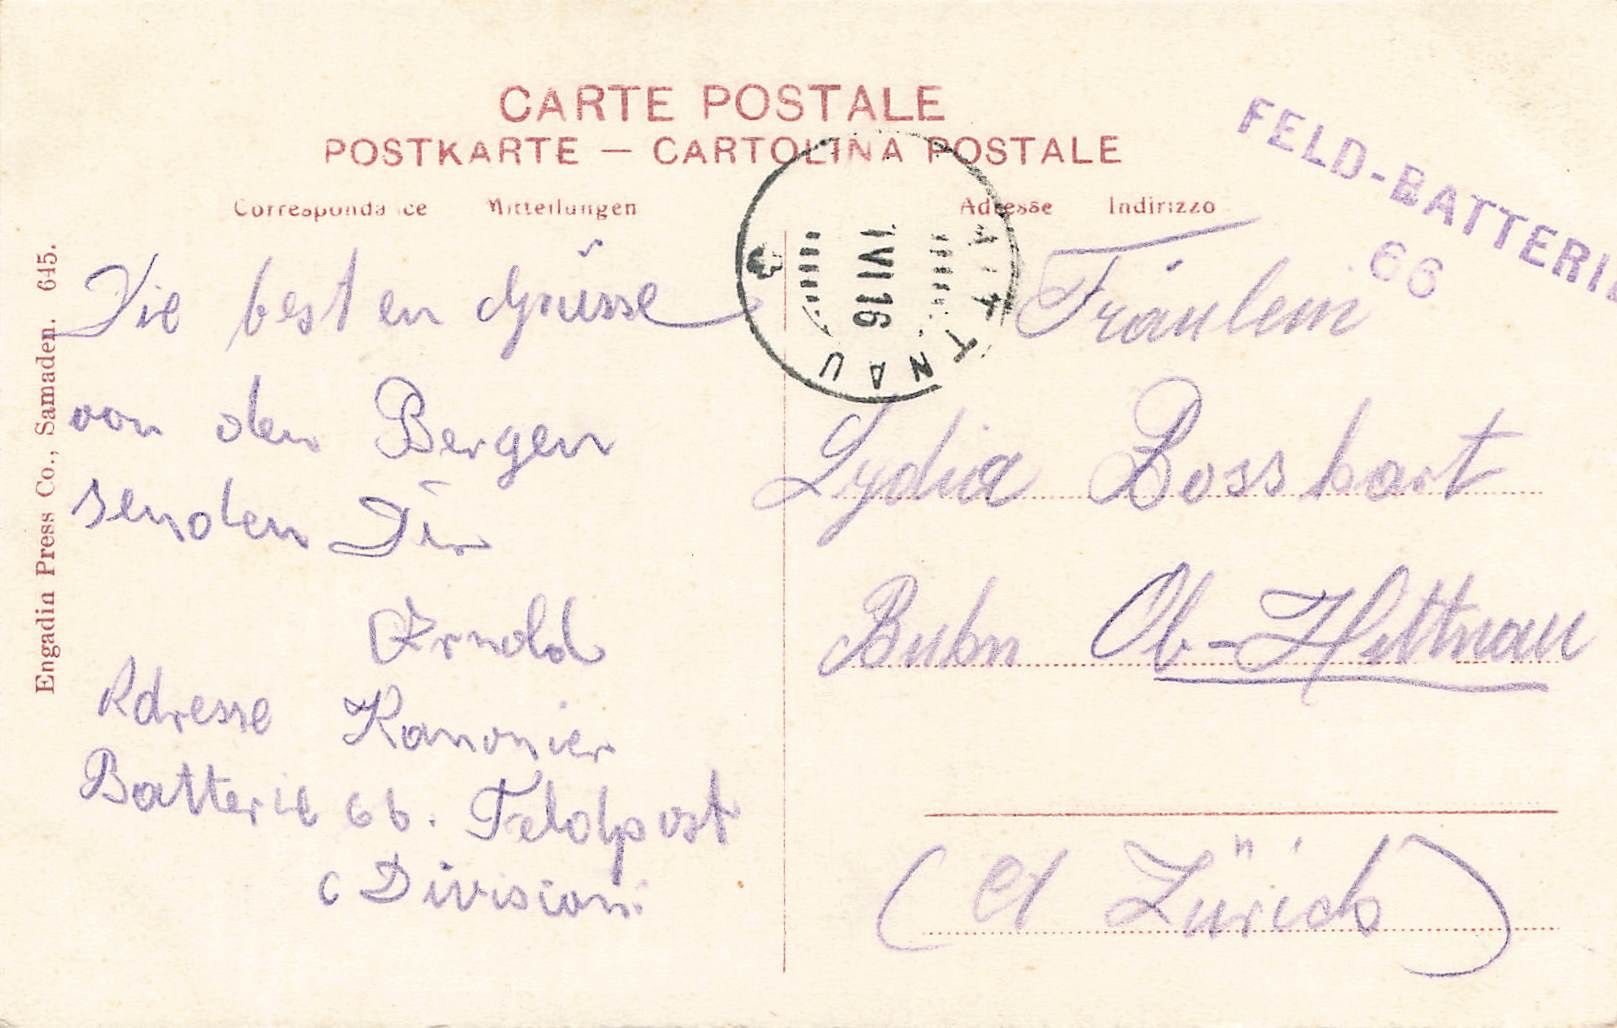 CARTE POSTALE
POSTKARTE — CARTOLINA POSTALE
Correspondance Mitteilungen Adresse Indirizzo
FELD-BATTERIE
66
VI 16
HITTNAU
Engadin Press Co., Samaden. 645.
Die besten Grüsse
von den Bergen
senden Dir
Arnold
Adresse Kanonier
Batterie 66. Feldpost
6 Division
Fräulein
Lydia Bosshart
Ob-Hittnau
(Ct Zürich)